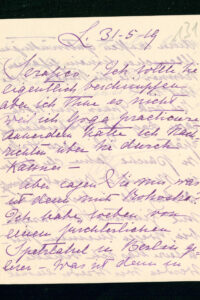 L. 31-5-19
Serafico, Ich sollte Sie
eigentlich beschimpfen
aber ich thue es nicht
weil ich Yoga practiciere
ausserdem hatte ich Nach
richten über Sie durch
Kassner –
Aber sagen Sie mir was
ist denn mit
Ich habe soeben von
einem fürchterlichen
Spektakel in Berlin ge
lesen – was ist denn